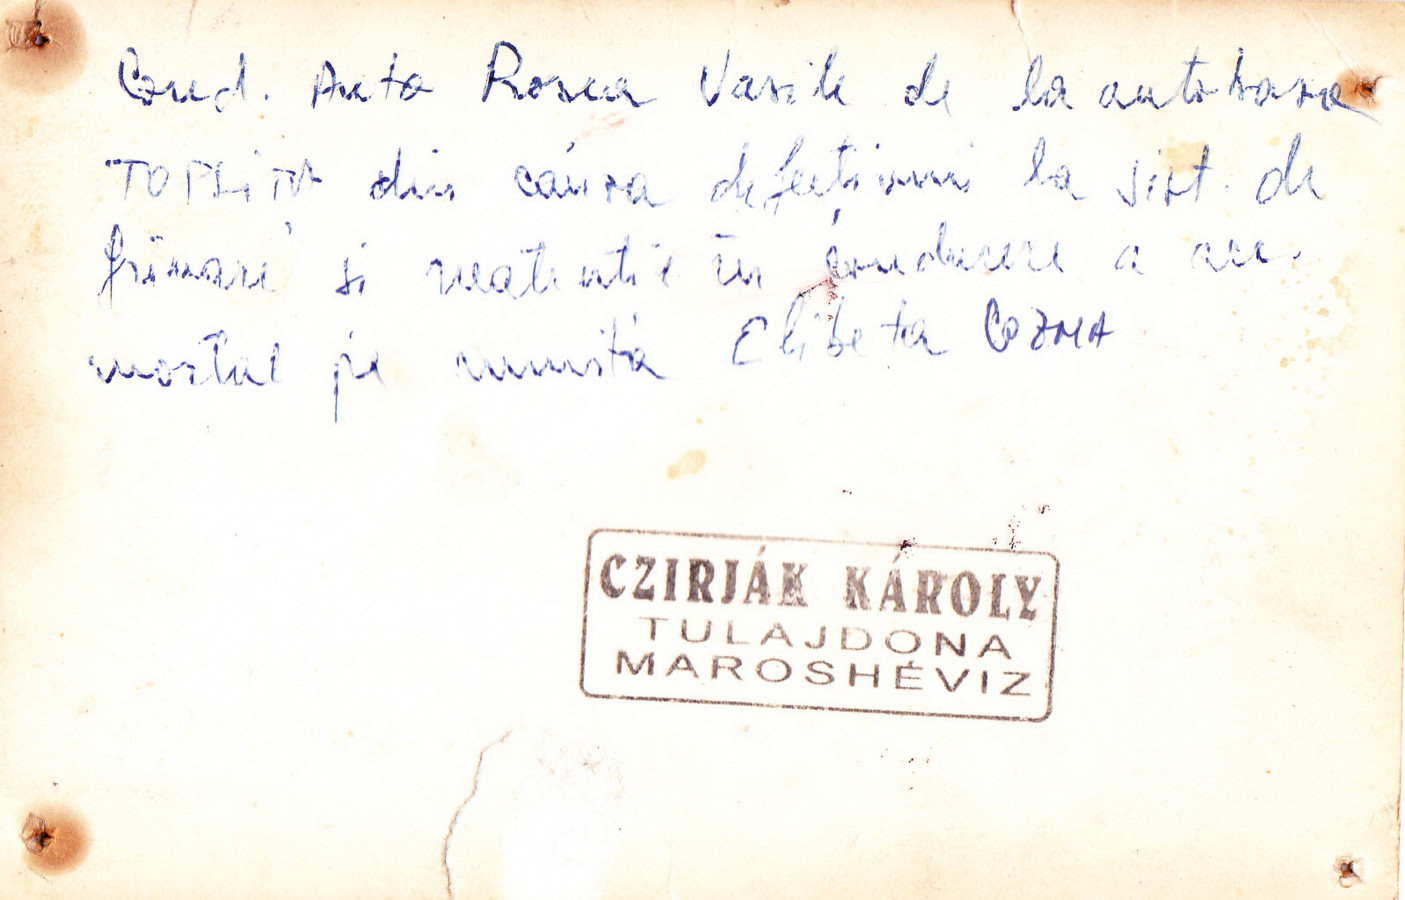 Cond. Auto Rosca Vasile de la autobaza
TOPLiTA din cauza defectiuni la sist. de
frinare si neatentie în conducere a acc.
mortal pe numita Elibeta COZMA
CZIRJÁK KÁROLY
TULAJDONA
MAROSHÉVIZ